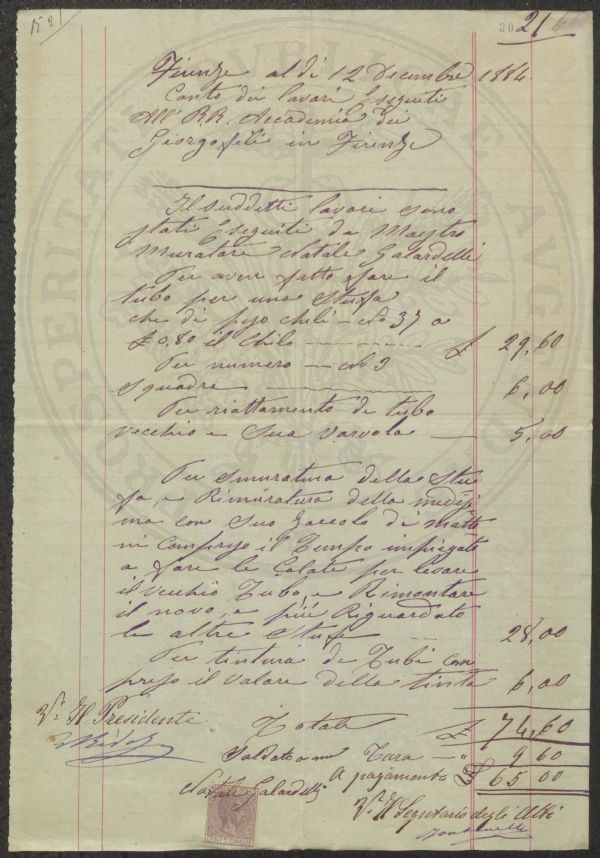 30 21
Firenze al di 12 Decembre 1884
Conto dei lavori Eseguiti
All' R.R. Accademia dei
Giorgofili in Firenze
Il suddetti lavori sono
stati Eseguiti da Maestro
Muratore Natale Galardelli
Per avere fatto fare il
tubo per una Stufa
che di peso chili — No 37 a
£ 0,80 il Chilo — £ 29,60
Per numero — No 3
Squadre — 6,00
Per riattamento di tubo
vecchio e Sua Varvola — 5,00
Per Smuratura della Stu
fa, e Rimuratura della medesi
ma con Suo Zoccolo di Matto
ni Compreso il Tempo impiegato
a fare le Calate per levare
il vecchio Tubo, e Rimontare
il novo, e più Riguardato
le altre Stufe — 28,00
Per tintura di Tubi Com
preso il Valore della tinta 6,00
V.° Il Presidente Totale £ 74,60
Saldato Tara — " 9 60
A pagamento 65 00
Natale Galardelli
V.° Il Segretario degli Atti